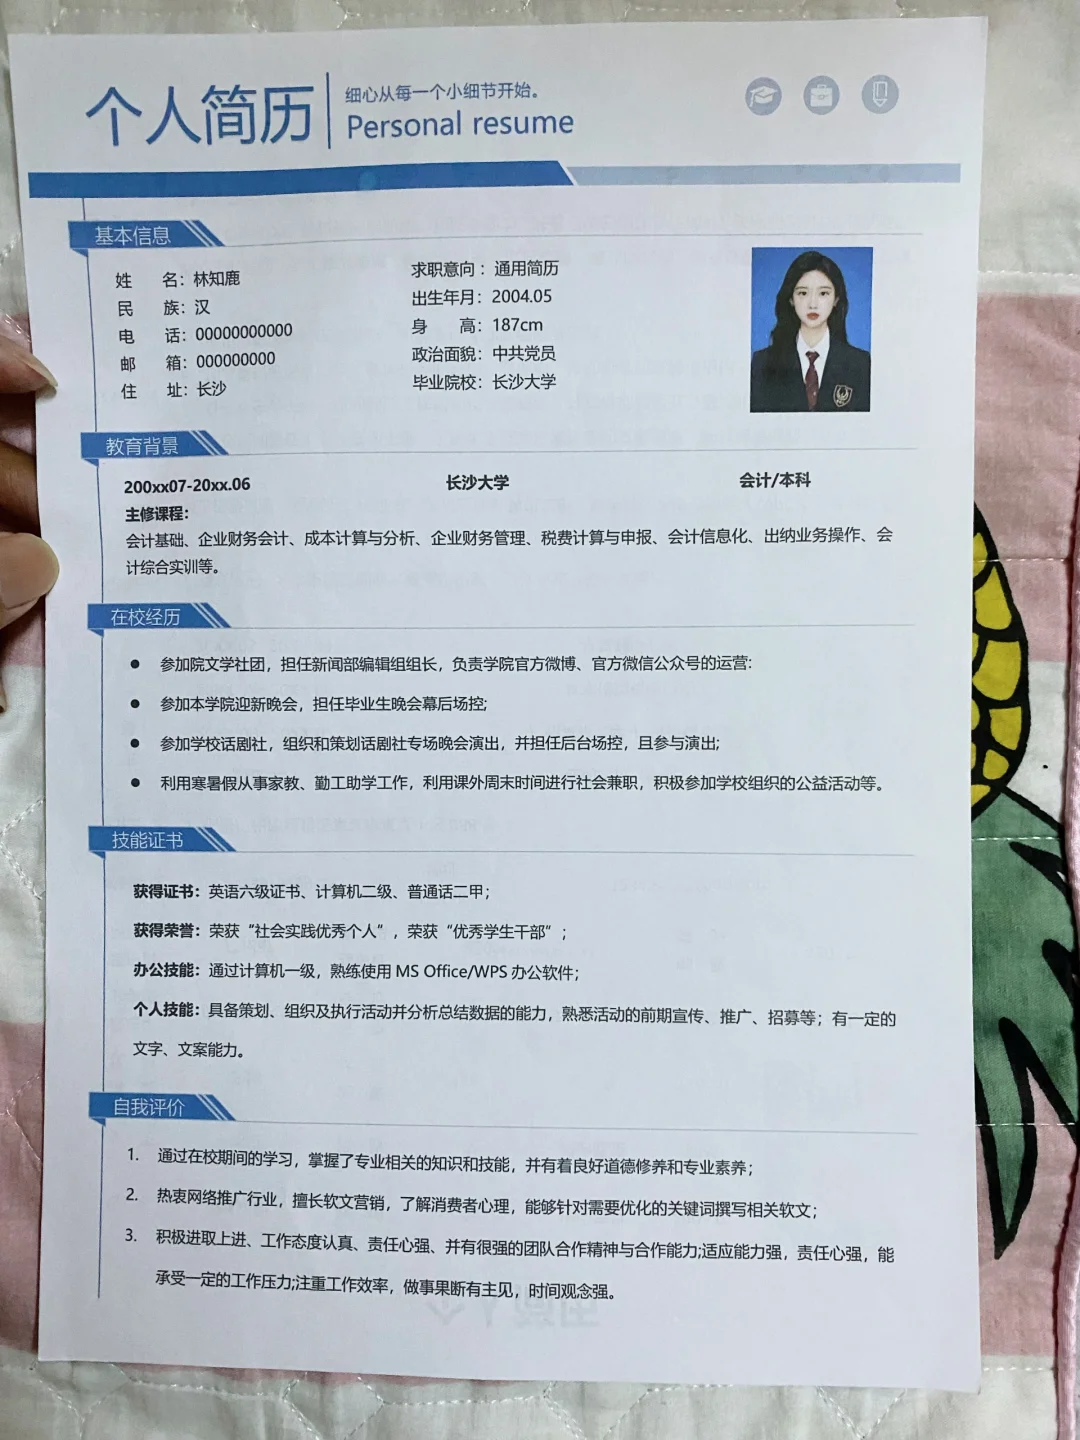 个人简历
细心从每一个小细节开始。
Personal resume
基本信息
姓 名：林知鹿
民 族：汉
电 话：00000000000
邮 箱：000000000
住 址：长沙
求职意向：通用简历
出生年月：2004.05
身 高：187cm
政治面貌：中共党员
毕业院校：长沙大学
教育背景
200xx07-20xx.06 长沙大学 会计/本科
主修课程：
会计基础、企业财务会计、成本计算与分析、企业财务管理、税费计算与申报、会计信息化、出纳业务操作、会
计综合实训等。
在校经历
● 参加院文学社团，担任新闻部编辑组组长，负责学院官方微博、官方微信公众号的运营:
● 参加本学院迎新晚会，担任毕业生晚会幕后场控;
● 参加学校话剧社，组织和策划话剧社专场晚会演出，并担任后台场控，且参与演出;
● 利用寒暑假从事家教、勤工助学工作，利用课外周末时间进行社会兼职，积极参加学校组织的公益活动等。
技能证书
获得证书：英语六级证书、计算机二级、普通话二甲；
获得荣誉：荣获“社会实践优秀个人”，荣获“优秀学生干部”；
办公技能：通过计算机一级，熟练使用 MS Office/WPS 办公软件；
个人技能：具备策划、组织及执行活动并分析总结数据的能力，熟悉活动的前期宣传、推广、招募等；有一定的
文字、文案能力。
自我评价
1. 通过在校期间的学习，掌握了专业相关的知识和技能，并有着良好道德修养和专业素养；
2. 热衷网络推广行业，擅长软文营销，了解消费者心理，能够针对需要优化的关键词撰写相关软文；
3. 积极进取上进、工作态度认真、责任心强、并有很强的团队合作精神与合作能力;适应能力强，责任心强，能
承受一定的工作压力;注重工作效率，做事果断有主见，时间观念强。